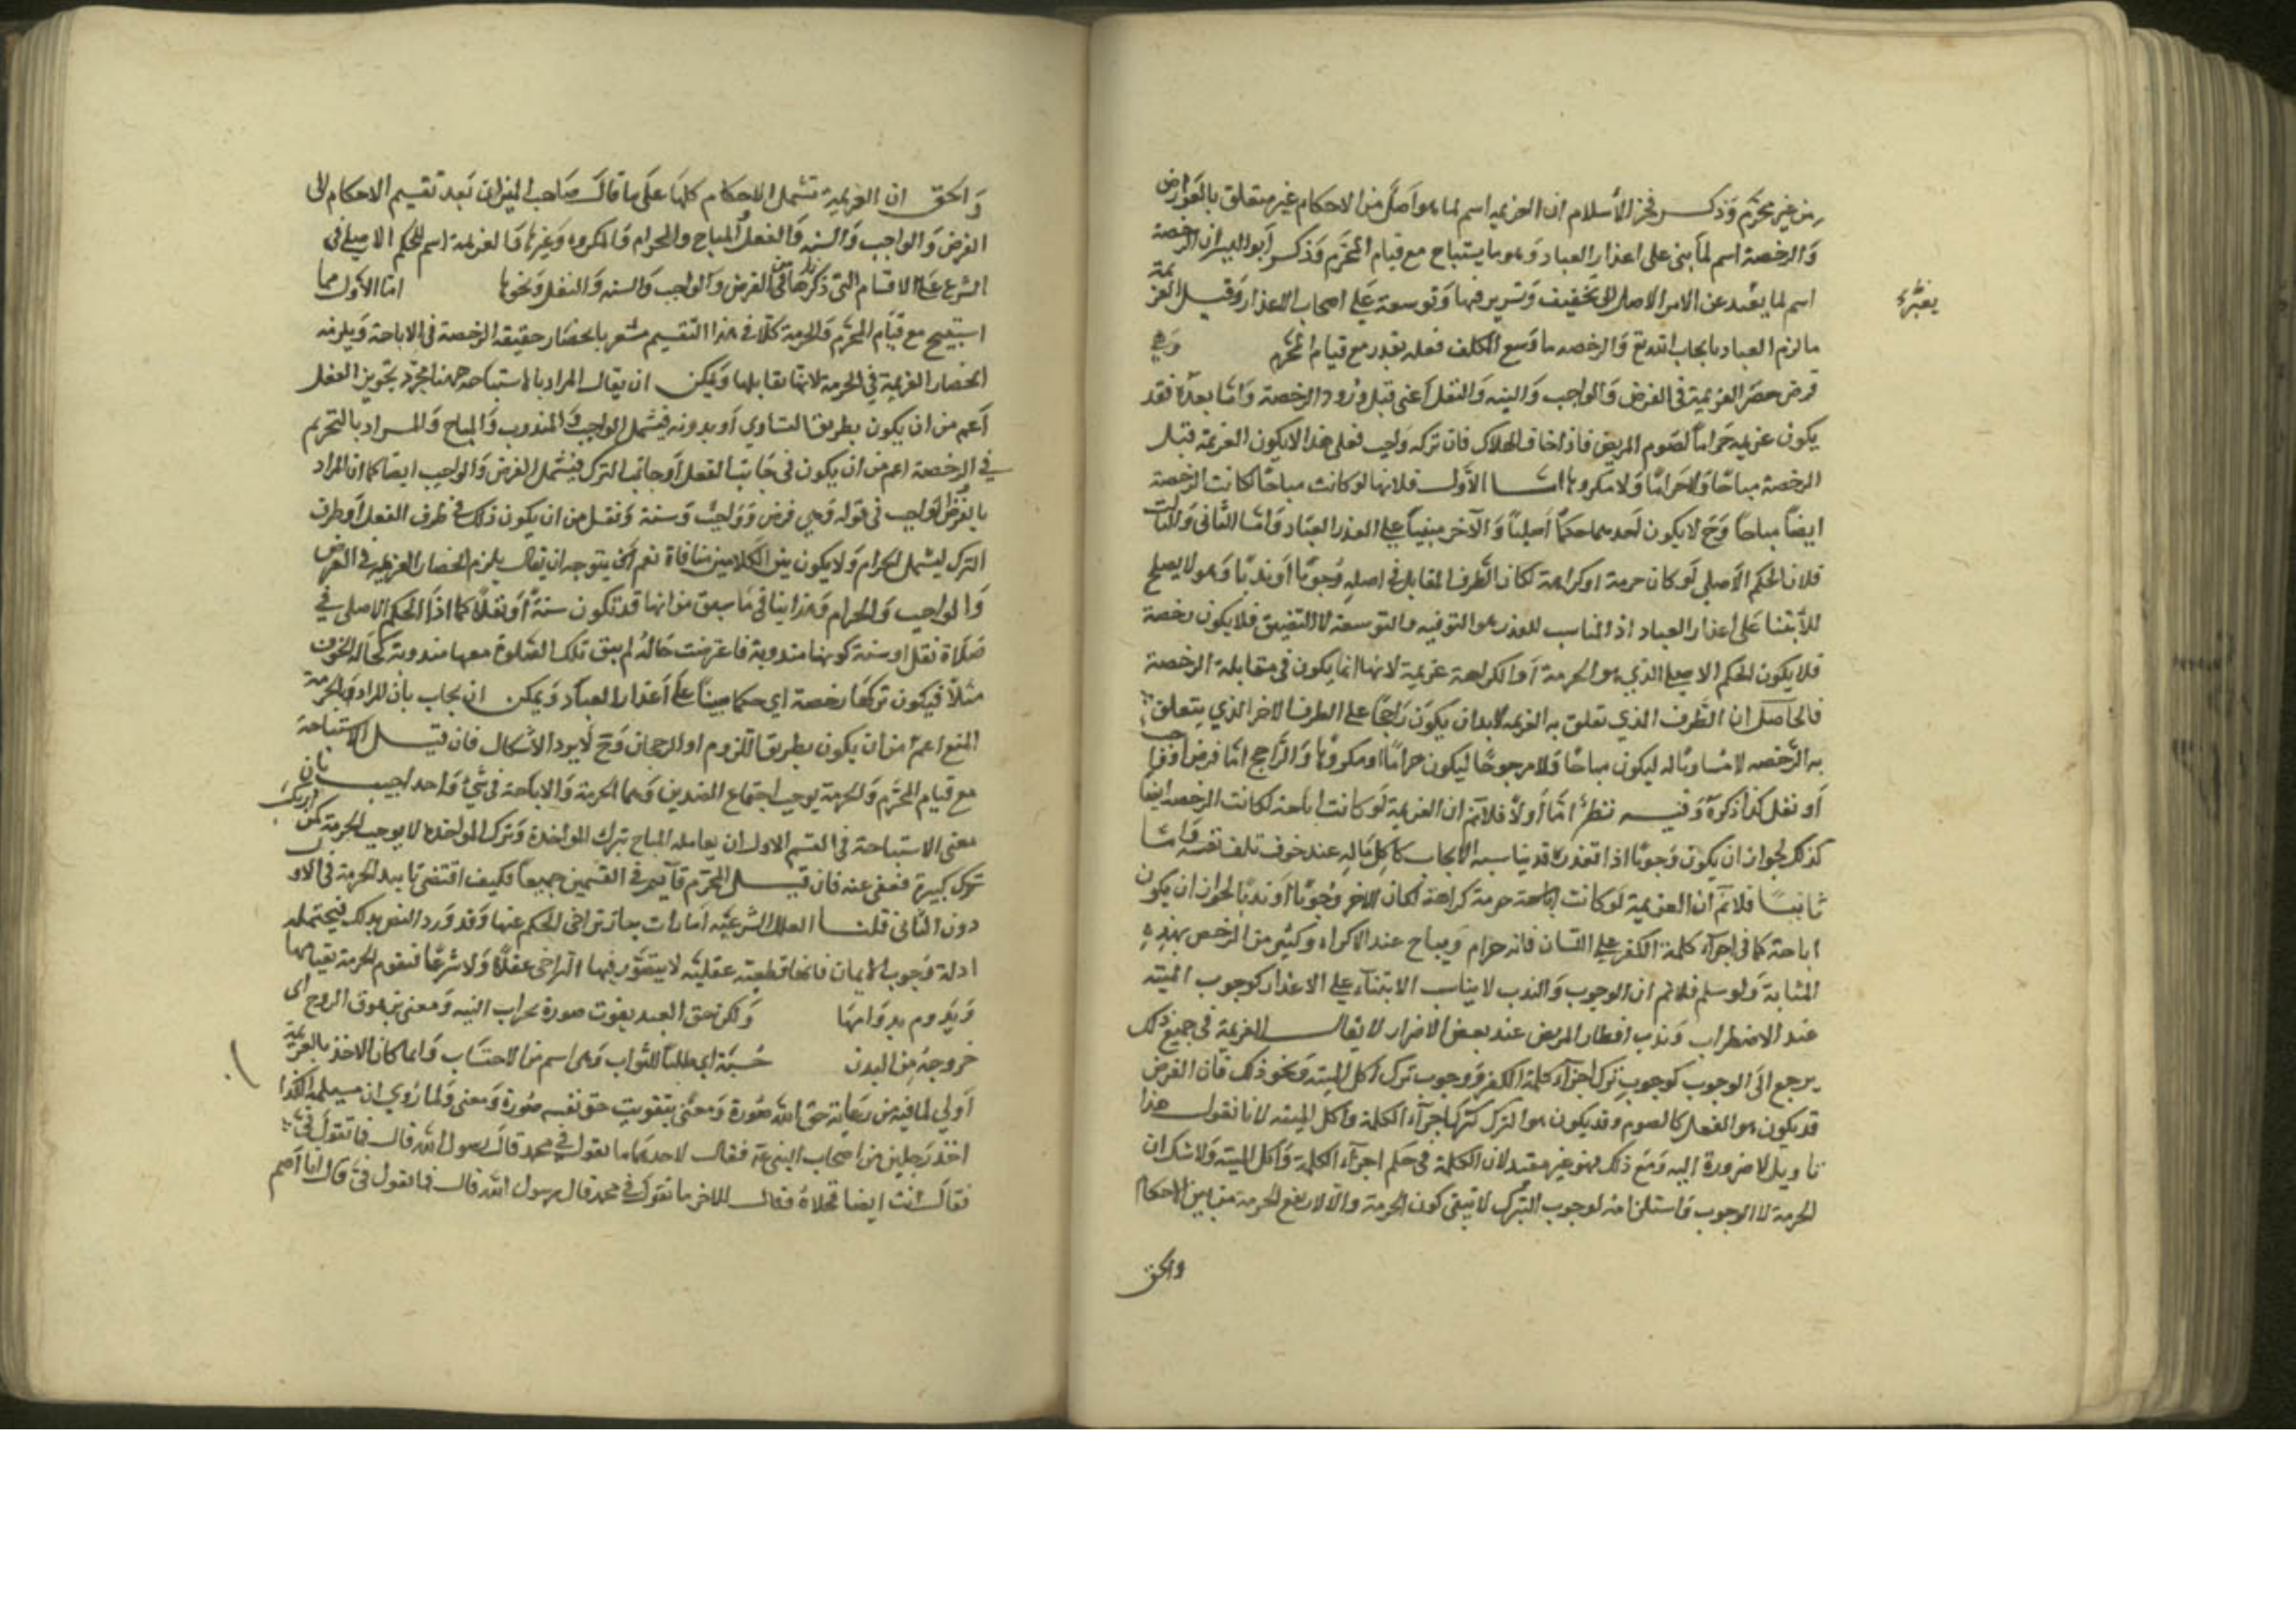 من غير محرم وذكر فخر الاسلام ان العزيمة اسم لما هو اصل من الاحكام غير متعلق بالعوارض
والرخصة اسم لما بنى على اعذار العباد وهو ما يستباح مع قيام المحرم وذكر ابو اليسر ان الرخصة
اسم لما يغير عن الامر الاصلى الى تخفيف وتيسير ترفيها وتوسعة على اصحاب الاعذار وقيل العزيمة
يغير
ما لزم العباد بايجاب الله تع والرخصه ما وسع للمكلف فعله بعذر مع قيام المحرم وهي
فرض حصر العزيمة في الفرض والواجب والسنه والنفل اعني قبل ورود الرخصة واما بعده فقد
يكون عزيمه حراما كصوم المريض فاذا خاف الهلاك فان تركه واجب فعلى هذا لا يكون العزيمة قبل
الرخصة مباحا ولا حراما ولا مكروها اما الاول فلانها لو كانت مباحا لكانت الرخصة
ايضا مباحا وح لا يكون احدهما حكما اصليا والآخر مبنيا على اعذار العباد واما الثانى والثالث
فلان الحكم الاصلي لو كان حرمة او كراهة لكان الطرف المقابل في اصله وجوبا او ندبا وهو لا يصلح
للابتنا على اعذار العباد اذ المناسب للعذر هو الترفيه والتوسعة لا التضييق فلا يكون رخصة
فلا يكون الحكم الاصلي الذي هو الحرمة او الكراهة عزيمة لانها انما يكون في مقابلة الرخصة
فالحاصل ان الطرف الذي تعلق به العزيمه لا بد ان يكون راجحا على الطرف الاخر الذي يتعلق
به الرخصه لا مساويا له ليكون مباحا ولا مرجوحا ليكون حراما او مكروها والراجح اما فرض او واجب
او نفل كذا ذكره وفيه نظر اما اولا فلانم ان العزيمة لو كانت اباحة لكانت الرخصه ايضا
كذلك لجواز ان يكون وجوبا اذا العذر قد يناسبه الايجاب كاكل ماله عند خوف تلف نفسه واما
ثانيا فلانم ان العزيمة لو كانت حرمة كراهة لكان الاخر وجوبا او ندبا لجواز ان يكون
اباحة كما في اجراء كلمة الكفر على اللسان فانه حرام ويباح عند الاكراه وكثير من الرخص بهذه
المثابة ولو سلم فلانم ان الوجوب والندب لا يناسب الابتناء على الاعذار كوجوب الميته
عند الاضطراب وندب افطار المريض عند بعض الاضرار لا يقال العزيمة في جميع ذلك
يرجع الى الوجوب كوجوب ترك اجراء كلمة الكفر ووجوب ترك اكل الميته ونحو ذلك فان الفرض
قد يكون هو الفعل كالصوم وقد يكون هو الترك كترك اجراء الكلمة واكل الميته لانا نقول هذا
تاويل لا ضرورة اليه ومع ذلك فهو غير مفيد لان الكلمة في حكم اجراء الكلمة واكل الميته ولا شك ان
الحرمة لا الوجوب واستلزامه لوجوب الترك لا ينفى كون الحرمة والا لارتفع الحرمة من بين الاحكام
والحق
والحق ان العزيمة تشمل الاحكام كلها على ما قال صاحب الميزان بعد تقسيم الاحكام الى
الفرض والواجب والسنه والنفل المباح والحرام والمكروه وغيرها فالعزيمة اسم للحكم الاصلي في
الشرع على الاقسام التي ذكرها من الفرض والواجب والسنه والنفل ونحوها اما الاول مما
استبيح مع قيام المحرم والحرمة كلا في هذا التقسيم مشعر بانحصار حقيقة الرخصة في الاباحة ويلزمه
انحصار العزيمة في الحرمة لانها تقابلها ويمكن ان يقال المراد بالاستباحه ههنا مجرد تجويز الفعل
اعم من ان يكون بطريق التساوي او بدونه فيشمل الواجب والمندوب والمباح والمراد بالتحريم
في الرخصة اعم من ان يكون في جانب الفعل او جانب الترك فيشمل الفرض والواجب ايضا كما ان المراد
بالفرض لواجب في قوله وهي فرض وواجب وسنة ونفل من ان يكون ذلك في طرف الفعل او طرف
الترك ليشمل الحرام ولا يكون بين الكلامين منافاة نعم يتوجه ان يقال يلزم انحصار العزيمه في الفرض
والواجب والحرام وهذا ينافى ما سبق من انها قد تكون سنة او نفلا كما اذا الحكم الاصلى في
صلاة نفل او سنة كونها مندوبة فاعترضت حالة لم يبق تلك الصلوة معها مندوبة كحالة الخوف
مثلا فيكون تركها رخصة اي حكما مبنيا على اعذار العباد ويمكن ان يجاب بان المراد بالحرمة
المنع اعم من ان يكون بطريق اللزوم او الرجحان وح لا يرد الاشكال فان قيل الاستباحة
مع قيام المحرم والحرمة يوجب اجتماع الضدين وهما الحرمة والاباحة في شئ واحد اجيب بان
معنى الاستباحة في القسم الاول ان يعامله المباح بترك المواخذة وترك المواخذة لا يوجب الحرمة كمن ارتكب
ترك كبيرة فعفى عنه فان قيل المحرم قائم في القسمين جميعا فكيف اقتضى تابيد الحرمة في الاول
دون الثانى قلنا العلل الشرعيه امارات جاز تراخي الحكم عنها وقد ورد النص بذلك فيحتمله
ادلة وجوب الايمان فانها قطعيه عقليه لا يتصور فيها التراخي عقلا ولا شرعا فتقوم الحرمة بقيامها
وتدوم بدوامها ولكن حق العبد يفوت صورة بخراب البنيه ومعنى بزهوق الروح اى
خروجه من البدن حسبة اي طلبا للثواب وهى اسم من الاحتساب وانما كان الاخذ بالعزيمة
اولى لما فيه من رعاية حق الله صورة ومعنى بتفويت حق نفسه صورة ومعنى ولما روي ان مسيلمة الكذا
اخذ رجلين من اصحاب النبي عه فقال لاحدهما ما تقول في محمد قال رسول الله قال فما تقول فيّ
فقال انت ايضا فخلاه فقال للاخر ما تقول في محمد قال رسول الله قال فما تقول فيّ قال انا اصم